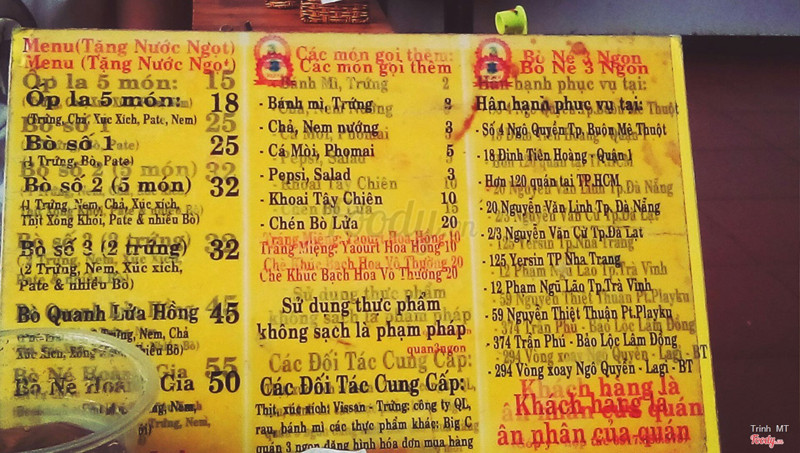 Menu (Tặng Nước Ngọt)
Ốp la 5 món: 18
(Trứng, Chả, Xúc Xích, Pate, Nem)
Bò số 1 25
(1 Trứng, Bò, Pate)
Bò số 2 (5 món) 32
(1 Trứng, Nem, Chả, Xúc xích,
Thịt Xông Khói, Pate & nhiều Bò)
Bò số 3 (2 trứng) 32
(2 Trứng, Nem, Xúc xích,
Pate & nhiều Bò)
Bò Quanh Lửa Hồng 45
Trứng, Nem, Chả
Bò Né Hoàng Gia 50
Trứng, Nem,
3
Các món gọi thêm
- Bánh mì, Trứng 2
- Chả, Nem nướng 3
- Cá Mòi, Phomai 5
- Pepsi, Salad 3
- Khoai Tây Chiên 10
- Chén Bò Lửa 20
Tráng Miệng: Yaourt Hoa Hồng 10
Chè Khúc Bạch Hoa Vô Thường 20
Sử dụng thực phẩm
không sạch là phạm pháp
quan3ngon
Các Đối Tác Cung Cấp:
Thịt, xúc xích: Vissan - Trứng: công ty QL,
rau, bánh mì các thực phẩm khác: Big C
quán 3 ngon đăng hình hóa đơn mua hàng
3
Bò Né 3 Ngon
Hân hạnh phục vụ tại:
- Số 4 Ngô Quyền Tp, Buôn Mê Thuột
- 18 Đinh Tiên Hoàng - Quận 1
Hơn 120 quán tại TP.HCM
- 20 Nguyễn Văn Linh Tp.Đà Nẵng
- 2/3 Nguyễn Văn Cừ Tp.Đà Lạt
- 125 Yersin TP Nha Trang
- 12 Phạm Ngũ Lão Tp.Trà Vinh
- 59 Nguyễn Thiệt Thuật Pt.Playku
- 374 Trần Phú - Bảo Lộc Lâm Động
- 294 Vòng xoay Ngô Quyền - Lagi - BT
Khách hàng là
ân nhân của quán
Trinh MT
Foody.vn